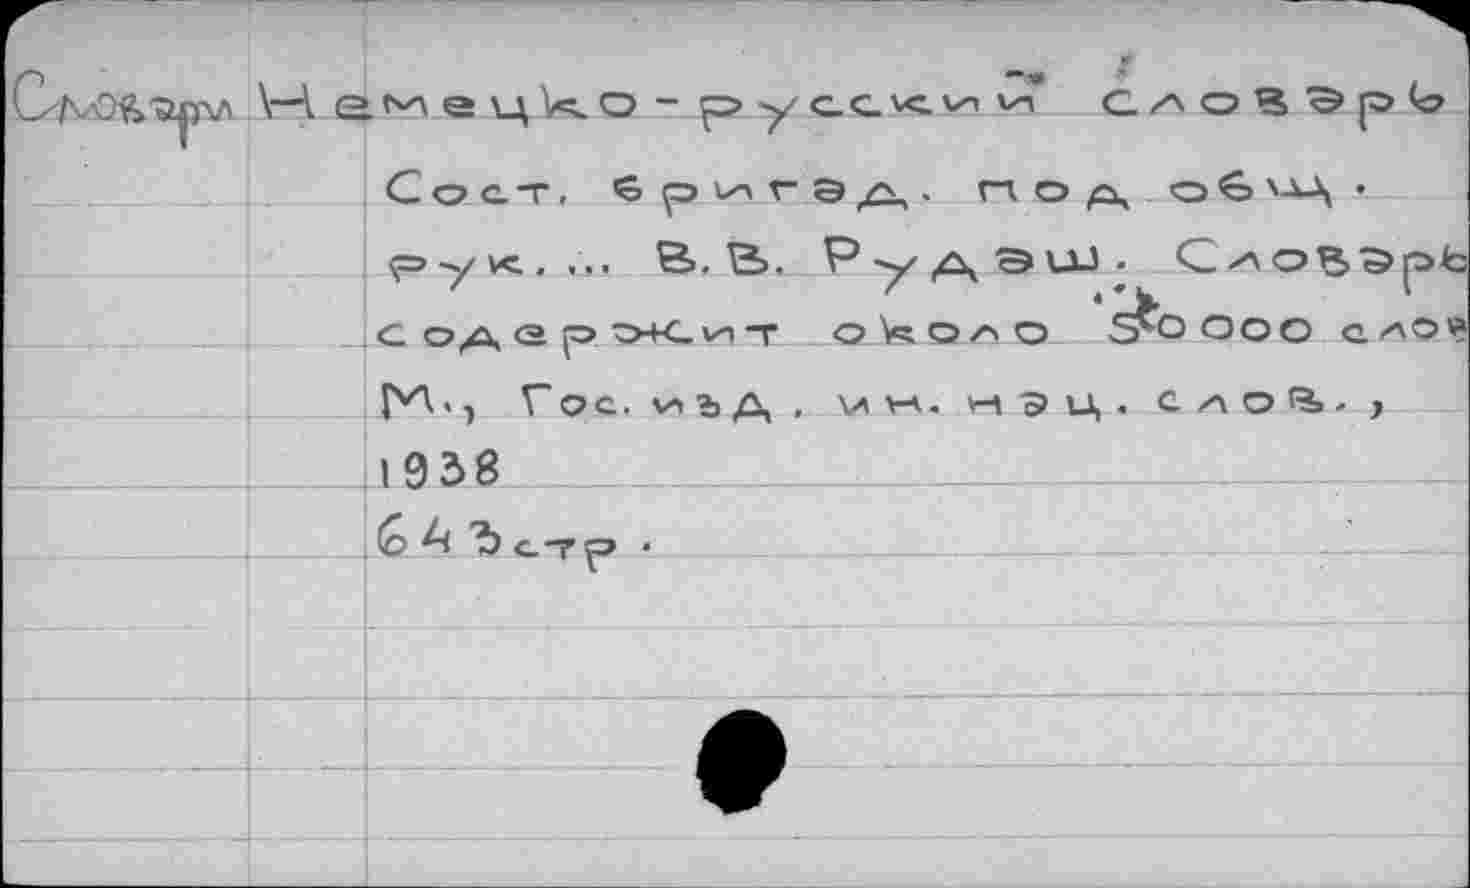 Словари Немецко-русский словарь
Сост. бригад. под общ.
рук. ... В. В. Рудаш. Словарь
содержит около 50000 слов
М., Гос. изд. ин. нац. слов.,
1938
643 стр.